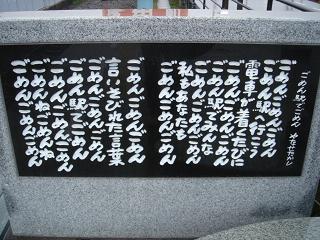 ごめん駅でごめん やなせたかし
ごめんごめんごめん
ごめん駅へ行こう
電車が着くたびに
ごめんごめんごめん
ごめん駅でみんな
ごめんごめんごめん
私もあなたも
ごめんごめんごめん
言いそびれた言葉
ごめんごめんごめん
ごめん駅でごめん
ごめんごめんごめん
ごめんねごめんね
ごめんごめんごめん